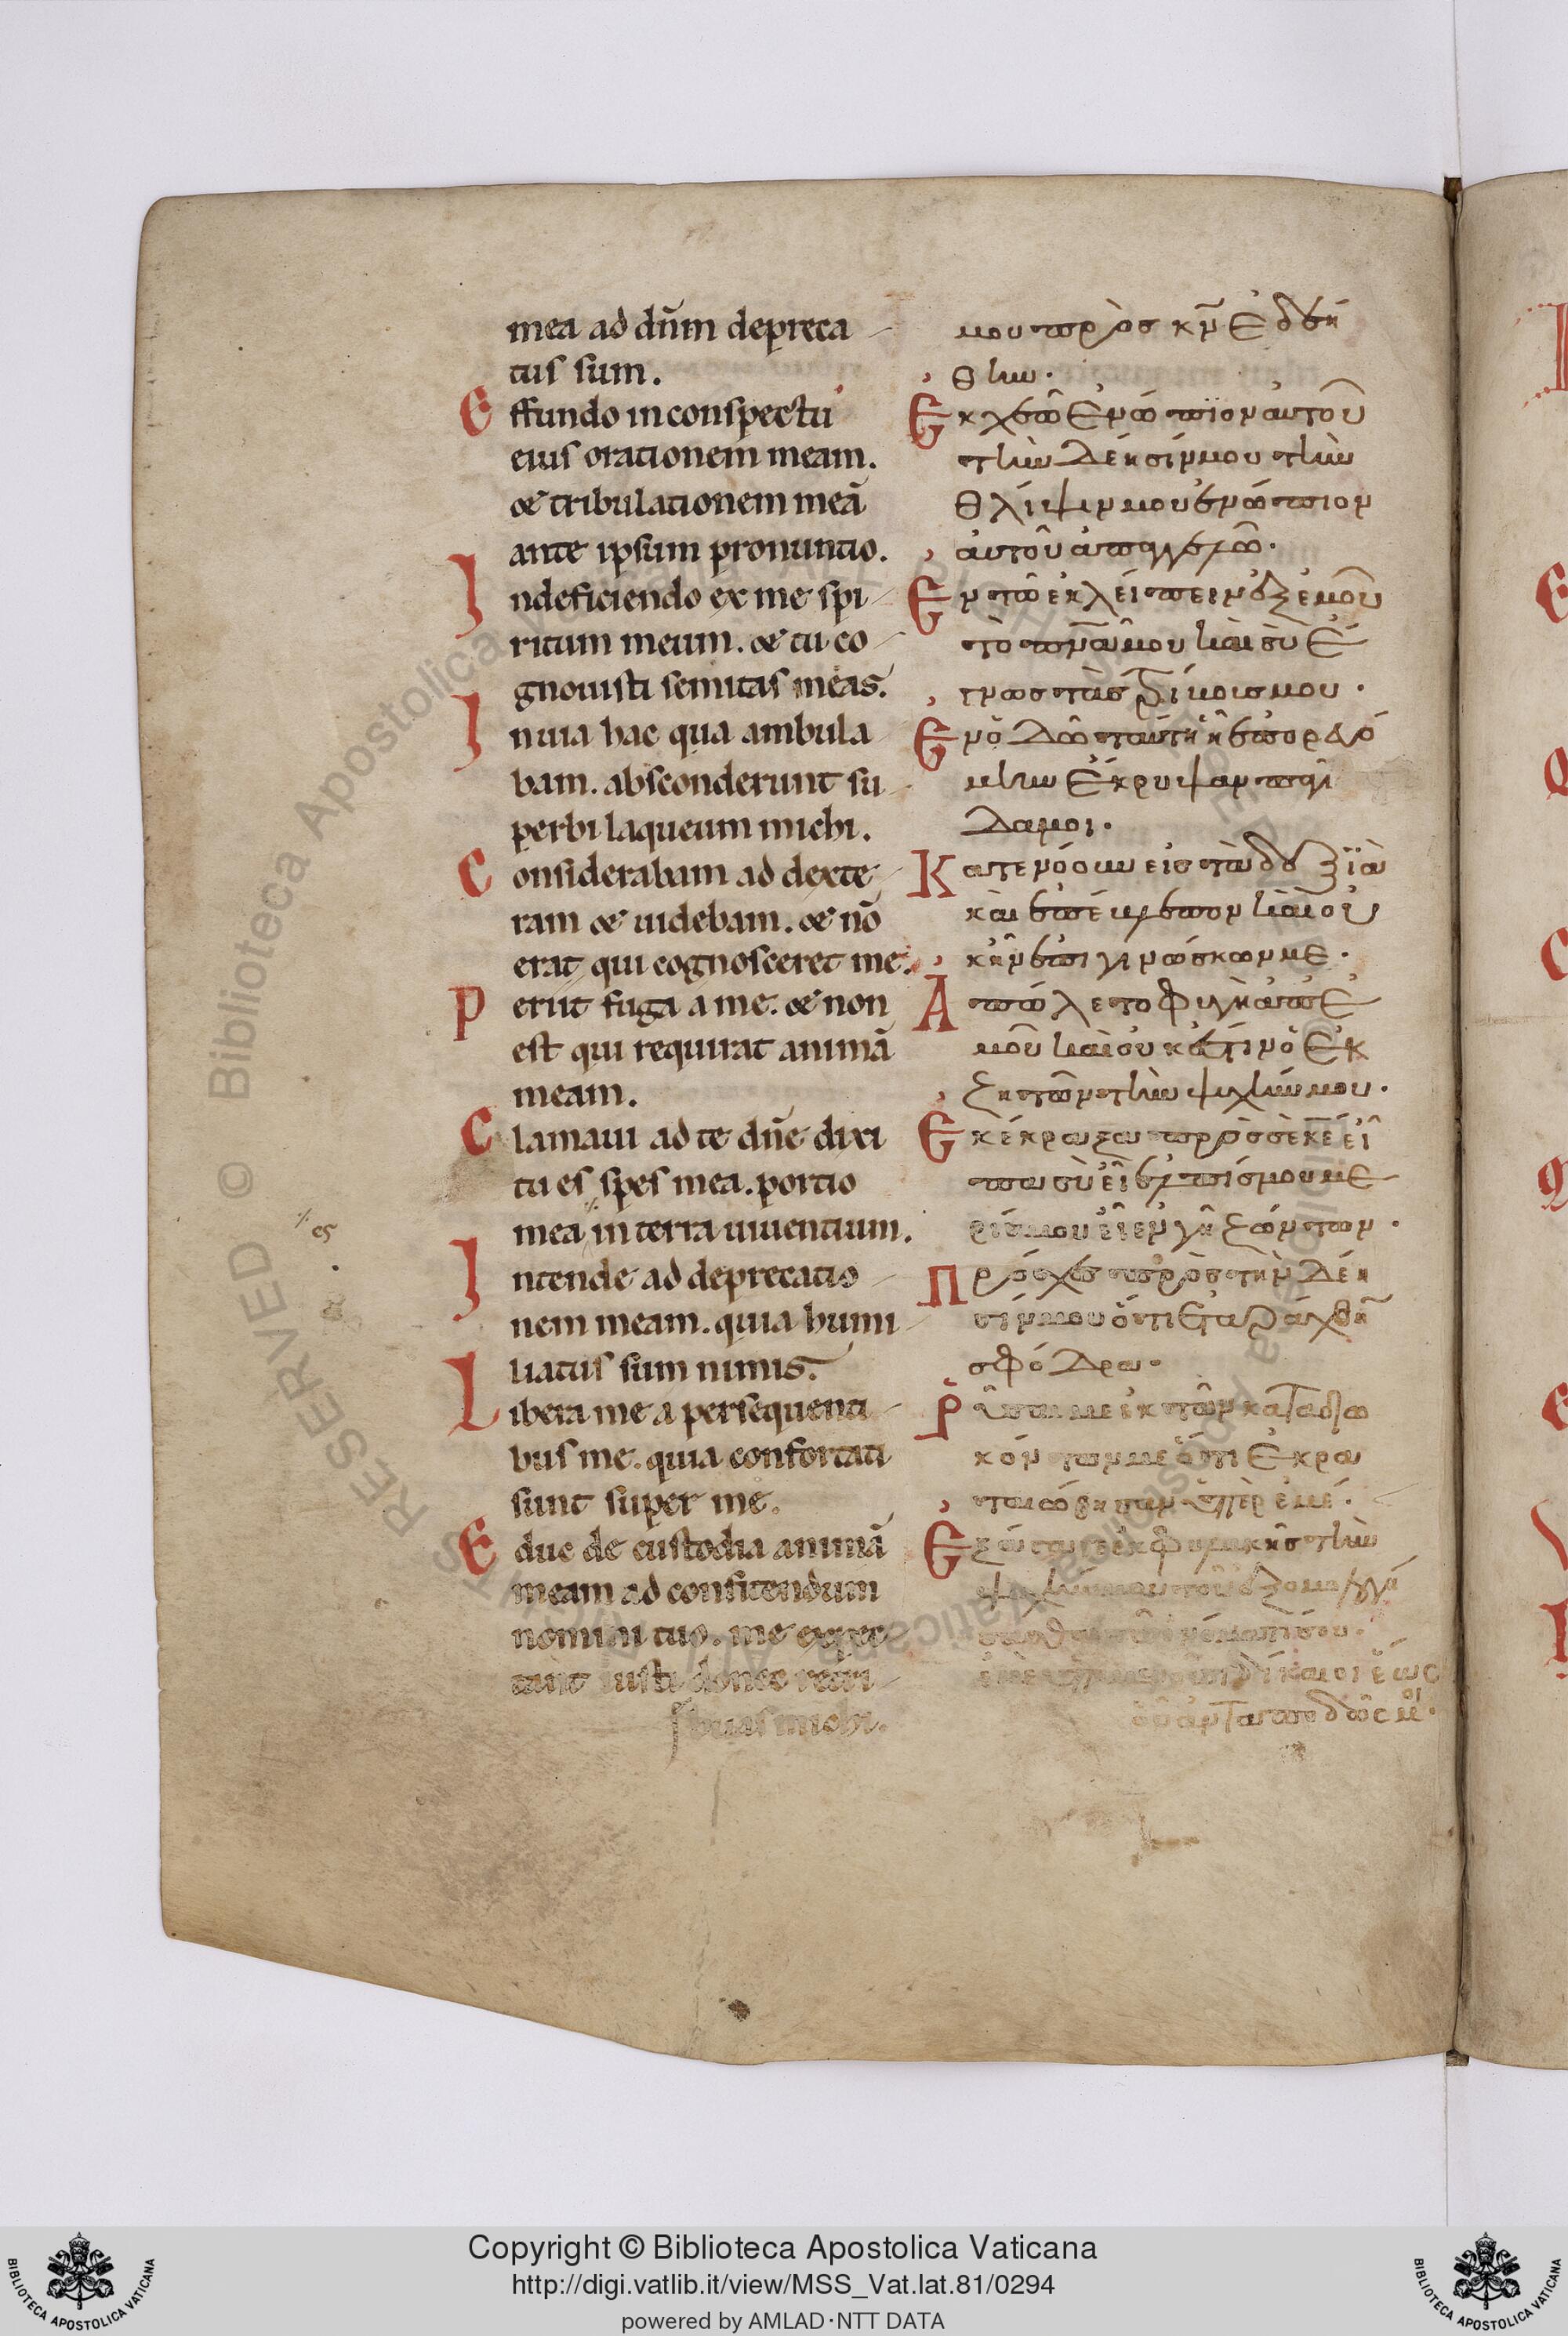 mea ad dñm depreca
tus sum.
Effundo in conspectu
eius orationem meam.
& tribulationem meā
ante ipsum pronuntio.
Indeficiendo ex me spi
ritum meum. & tu co
gnouisti semitas meas.
In uia hac qua ambula
bam. absconderunt su
perbi laqueum michi.
Considerabam ad dexte
ram & uidebam. & nō
erat qui cognosceret me.
Periit fuga a me. & non
est qui requirat animā
meam.
Clamaui ad te dñe dixi
tu es spes mea. portio
mea in terra uiuentium.
es
Intende ad deprecatio
nem meam. quia humi
liatus sum nimis.
Libera me a persequenti
bus me. quia confortati
sunt super me.
Educ de custodia animā
meam ad confitendum
nomini tuo. me expec
tant iusti donec retri
buas michi.
μου πρὸσ κν̅ ἐδεή
θην.
Ἐκχεῶ ἐνώπϊον αυτοῦ
τὴν δέησίν μου τὴν
θλίψιν μου ἐνώπιον
ἀυτοῦ ἀπαγγελῶ.
Ἐν τῶ ἐκλείπειν ἐξ ἐμοῦ
τὸ πνα̅ μου καὶ σὺ ἔ
γνωσ τὰσ τρίβουσ μου.
Ἐν ὁδῶ ταύτη ἧ ἐπορευό
μην ἔκρυψαν παγί
δα μοι.
Κατενόουν εἰσ τὰ δεξϊὰ
καὶ ἐπέβλεπον καὶ οὐ
κ ἦν ἐπιγινώσκων με.
Ἀπώλετο φυγὴ ἀπ' ἐ
μοῦ καὶ οὐκ ἔστιν ὁ ἐκ
ζητῶν τὴν ψυχήν μου.
Ἐκέκραξα πρὸσ σὲ κε̅ εἶ
πα σὺ εἶ ἐλπίσ μου με
ρίσ μου εἶ ἐν γῆ ζώντων.
Πρόσχεσ πρὸσ τὴν δέη
σίν μου ὅτι ἐταπεινώθην
σφόδρα.
Ῥῦσαι με ἐκ τῶν καταδιω
κόντων με ὅτι ἐκρα
ταιώθησαν ὑπὲρ ἐμέ.
Ἐξάγαγε ἐκ φυλακῆσ τὴν
δίκαιοι ἕωσ
οὗ ἀνταποδῶσ μοι.
Copyright © Biblioteca Apostolica Vaticana
http://digi.vatlib.it/view/MSS_Vat.lat.81/0294
powered by AMLAD·NTT DATA